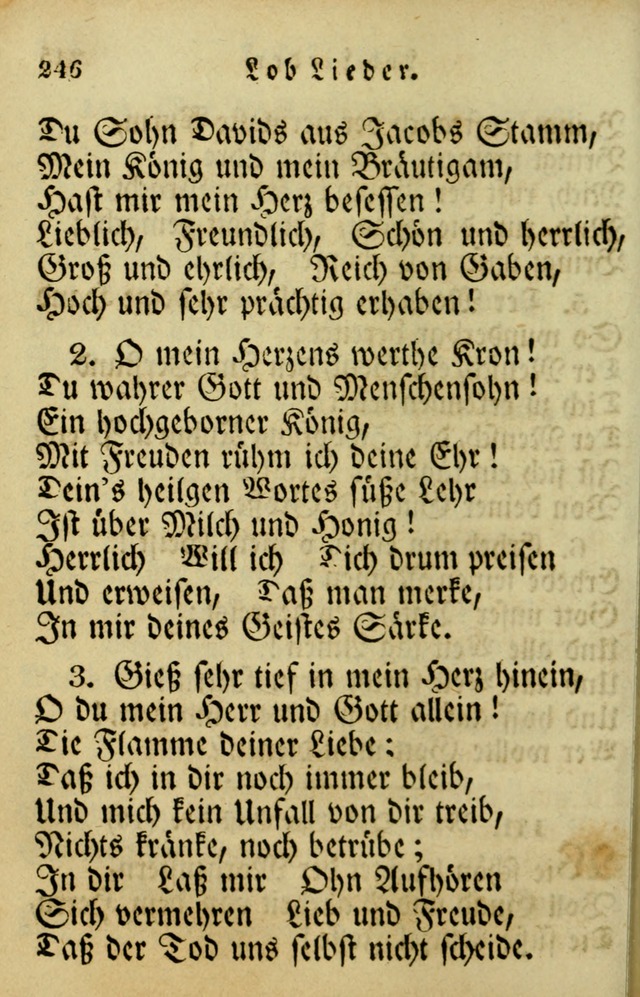 246 Lob Lieder.
Du Sohn Davids aus Jacobs Stamm,
Mein König und mein Bräutigam,
Hast mir mein Herz besessen!
Lieblich, Freundlich, Schön und herrlich,
Groß und ehrlich, Reich von Gaben,
Hoch und sehr prächtig erhaben!
2. O mein Herzens werthe Kron!
Du wahrer Gott und Menschensohn!
Ein hochgeborner König,
Mit Freuden rühm ich deine Ehr!
Dein's heilgen Wortes süße Lehr
Ist über Milch und Honig!
Herrlich Will ich Dich drum preisen
Und erweisen, Daß man merke,
In mir deines Geistes Särke.
3. Gieß sehr tief in mein Herz hinein,
O du mein Herr und Gott allein!
Die Flamme deiner Liebe;
Daß ich in dir noch immer bleib,
Und mich kein Unfall von dir treib,
Nichts kränke, noch betrübe;
In dir Laß mir Ohn Aufhören
Sich vermehren Lieb und Freude,
Daß der Tod uns selbst nicht scheide.